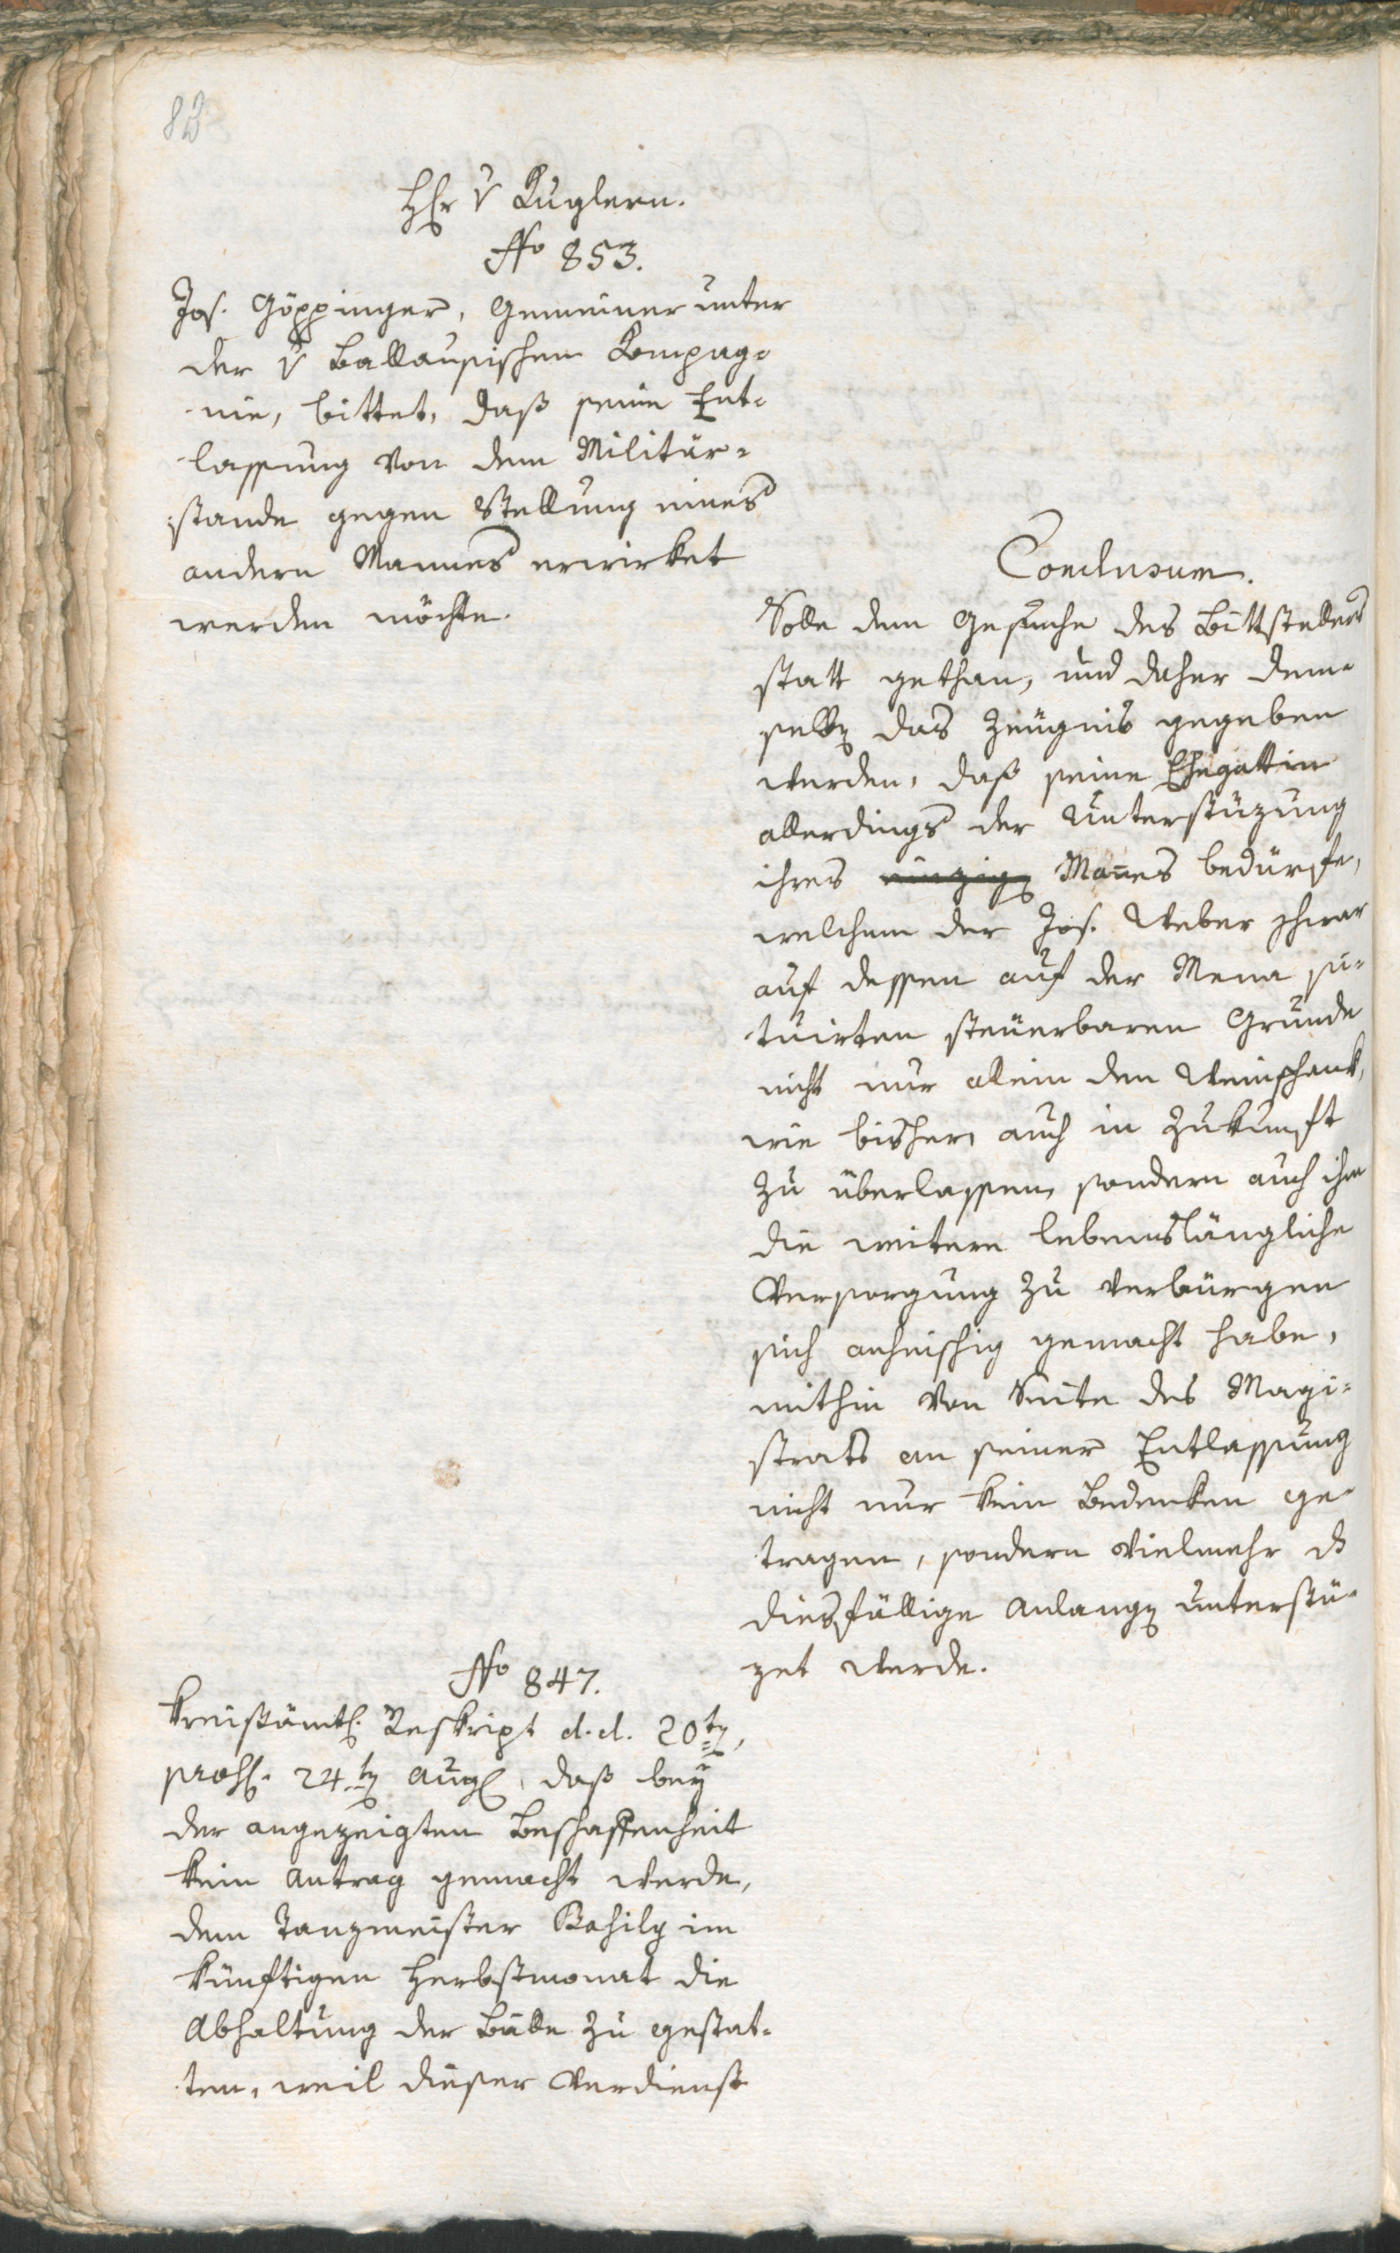 82
H. v Kuglern.
No 853.
Jos. Göppinger, Gemeiner unter
der v Ballausischen Kompag-
nie, bittet, daß seine Ent-
lassung von dem Militär-
stande gegen Stellung eines
andern Mannes erwirket
werden möchte.
Conclusum.
Solle dem Gesuche des Bittstellers
statt gethan, und daher dem-
selb das Zeugnis gegeben
werden, daß seine Ehegattin
allerdings der Unterstüzung
ihres einzig Mañes bedürfe,
welchem der Jos. Weber zwar
auf dessen auf der Mena si-
tuirten steuerbaren Grunde
nicht nur allein den Weinschank,
wie bisher, auch in Zukunft
zu überlassen, sondern auch ihm
die weitere lebenslängliche
Versorgung zu verbürgen
sich anheischig gemacht habe,
mithin von Seite des Magi-
strats an seiner Entlassung
nicht nur kein Bedenken ge-
tragen, sondern vielmehr d
diesfällige Anlang unterstü-
zet werde.
No 847.
Kreisämtl. Reskript d. d. 20t,
präs. 24t Aug, daß bey
der angezeigten Beschaffenheit
kein Antrag gemacht werde,
dem Tanzmeister im
künftigen Herbstmonat die
Abhaltung der Bälle zu gestat-
ten, weil dieser Verdienst